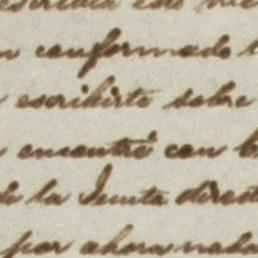 escribia esto
conformado
escribirte sobre
encontré con
de la Junta direct
por ahora nada